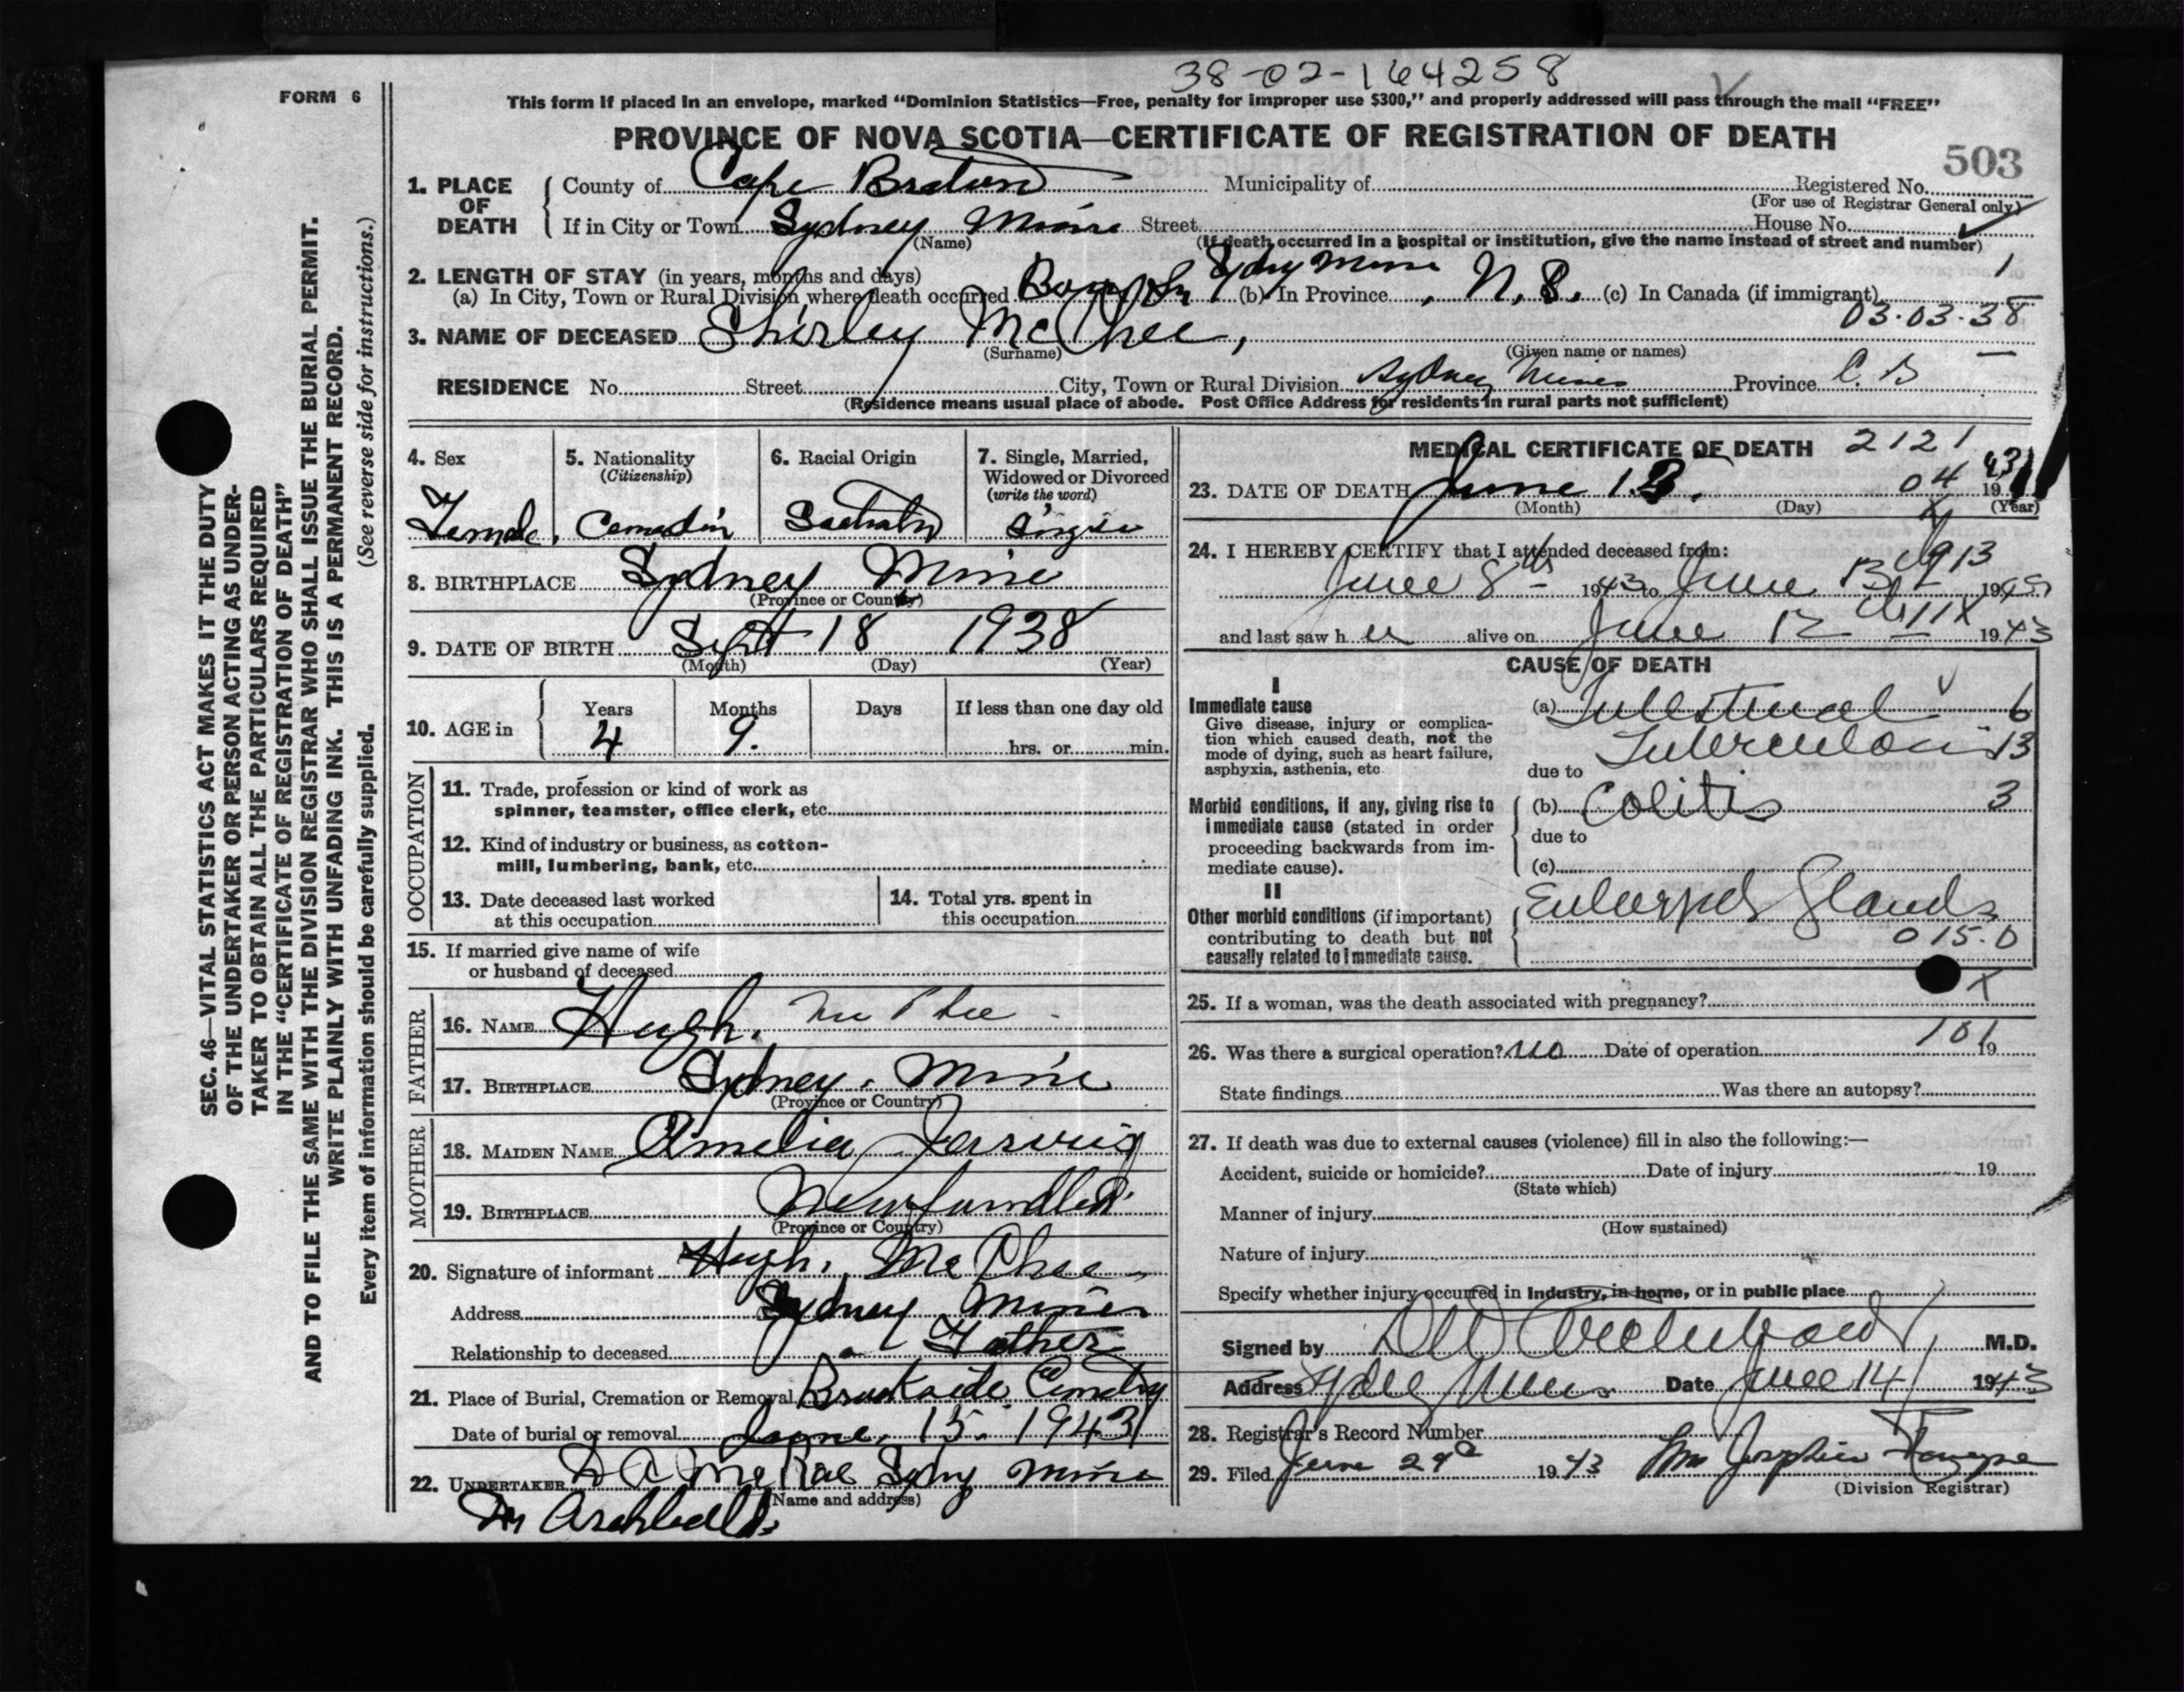 38-02-164258
FORM 6
This form if placed in an envelope, marked "Dominion Statistics—Free, penalty for improper use $300," and properly addressed will pass through the mail "FREE"
PROVINCE OF NOVA SCOTIA—CERTIFICATE OF REGISTRATION OF DEATH
503
1. PLACE OF DEATH
County of Cape Breton Municipality of Registered No.
(For use of Registrar General only)
If in City or Town Sydney Mines Street House No.
(Name) (If death occurred in a hospital or institution, give the name instead of street and number)
2. LENGTH OF STAY (in years, months and days)
(a) In City, Town or Rural Division where death occurred Born In Sydny Mines (b) In Province N.S. (c) In Canada (if immigrant) 1
03.03.38
3. NAME OF DECEASED Shirley McPhee,
(Surname) (Given name or names)
RESIDENCE No. Street City, Town or Rural Division Sydney Mines Province C.B
(Residence means usual place of abode. Post Office Address for residents in rural parts not sufficient)
4. Sex
Female.
5. Nationality
(Citizenship)
6. Racial Origin
7. Single, Married, Widowed or Divorced
(write the word)
Single
8. BIRTHPLACE Sydney Mine
(Province or Country)
9. DATE OF BIRTH Sept 18 1938
(Month) (Day) (Year)
10. AGE in
Years 4
Months 9.
Days
If less than one day old
hrs. or min.
OCCUPATION
11. Trade, profession or kind of work as spinner, teamster, office clerk, etc.
12. Kind of industry or business, as cotton-mill, lumbering, bank, etc.
13. Date deceased last worked at this occupation
14. Total yrs. spent in this occupation
15. If married give name of wife or husband of deceased
FATHER
16. NAME Hugh. McPhee
17. BIRTHPLACE Sydney. Mine
(Province or Country)
MOTHER
18. MAIDEN NAME Amelia
19. BIRTHPLACE Newfundlen
(Province or Country)
20. Signature of informant Hugh. McPhee
Address Sydney Mines
Relationship to deceased Father
21. Place of Burial, Cremation or Removal Brookside Cemetry
Date of burial or removal June. 15. 1943
22. UNDERTAKER D A McRae Sydny Mines
(Name and address)
Dr Archbald.
MEDICAL CERTIFICATE OF DEATH 2121
23. DATE OF DEATH June 13. 04 1943
(Month) (Day) (Year)
24. I HEREBY CERTIFY that I attended deceased from:
June 8th 1943 to June 13 1943
and last saw her alive on June 12 1943
CAUSE OF DEATH
I
Immediate cause
Give disease, injury or complication which caused death, not the mode of dying, such as heart failure, asphyxia, asthenia, etc.
(a) Intestinal 6
Tuberculosis 13
due to
Morbid conditions, if any, giving rise to immediate cause (stated in order proceeding backwards from immediate cause).
(b) Colitis 3
due to
(c)
II
Other morbid conditions (if important) contributing to death but not causally related to immediate cause.
Enlarged Glands
015.0
25. If a woman, was the death associated with pregnancy? X
101
26. Was there a surgical operation? no Date of operation 19
State findings Was there an autopsy?
27. If death was due to external causes (violence) fill in also the following:—
Accident, suicide or homicide? Date of injury 19
(State which)
Manner of injury
(How sustained)
Nature of injury
Specify whether injury occurred in Industry, in home, or in public place
Signed by Archibald M.D.
Address Sydney Mines Date June 14 1943
28. Registrar's Record Number
29. Filed June 29 1943 Mrs Josephine
(Division Registrar)
SEC. 46—VITAL STATISTICS ACT MAKES IT THE DUTY
OF THE UNDERTAKER OR PERSON ACTING AS UNDER-
TAKER TO OBTAIN ALL THE PARTICULARS REQUIRED
IN THE "CERTIFICATE OF REGISTRATION OF DEATH"
AND TO FILE THE SAME WITH THE DIVISION REGISTRAR WHO SHALL ISSUE THE BURIAL PERMIT.
WRITE PLAINLY WITH UNFADING INK. THIS IS A PERMANENT RECORD.
Every item of information should be carefully supplied. (See reverse side for instructions.)